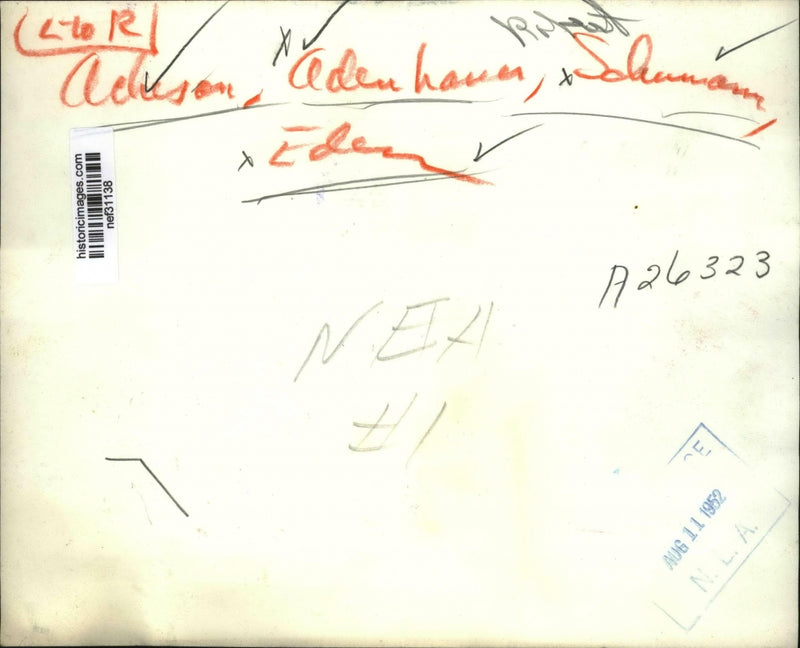 (L to R)
Robert
Acheson, x Adenhauer, x Schumann,
x Eden
historicimages.com
nef31138
A26323
NEA
#1
CE
AUG 11 1952
N. E. A.